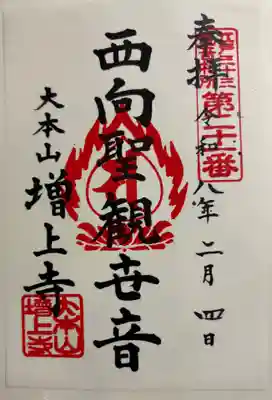 奉拝
江戸三十三観音札所第二十一番
令和八年二月四日
西向聖観世音
大本山増上寺
大本山増上寺